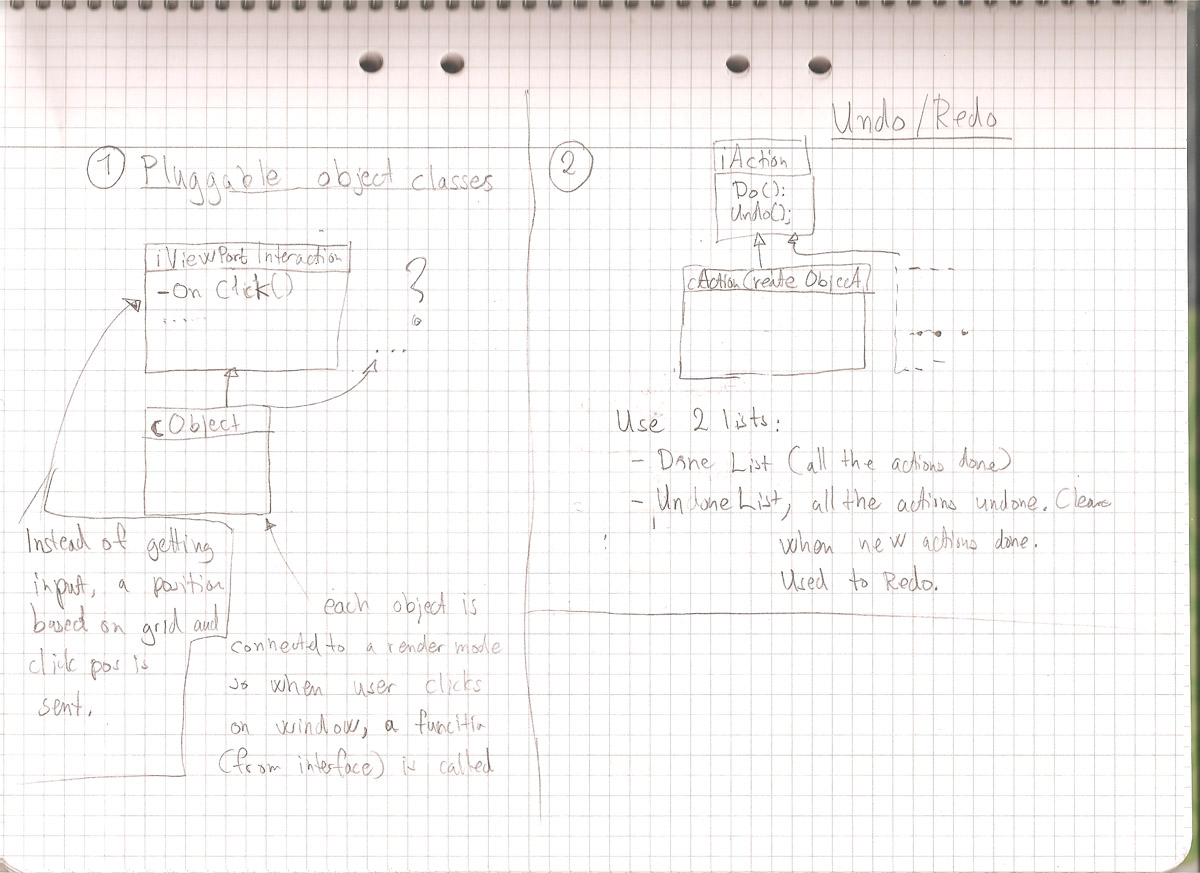 ① Pluggable object classes
iViewPort Interaction
- On Click()
.....
?
...
cObject
Instead of getting
input, a position
based on grid and
click pos is
sent.
each object is
connected to a render mode
so when user clicks
on window, a function
(from interface) is called
② Undo/Redo
iAction
Do();
Undo();
cActionCreate Object
Use 2 lists:
- Done List (all the actions done)
- Undone List, all the actions undone. Cleare
when new actions done.
Used to Redo.